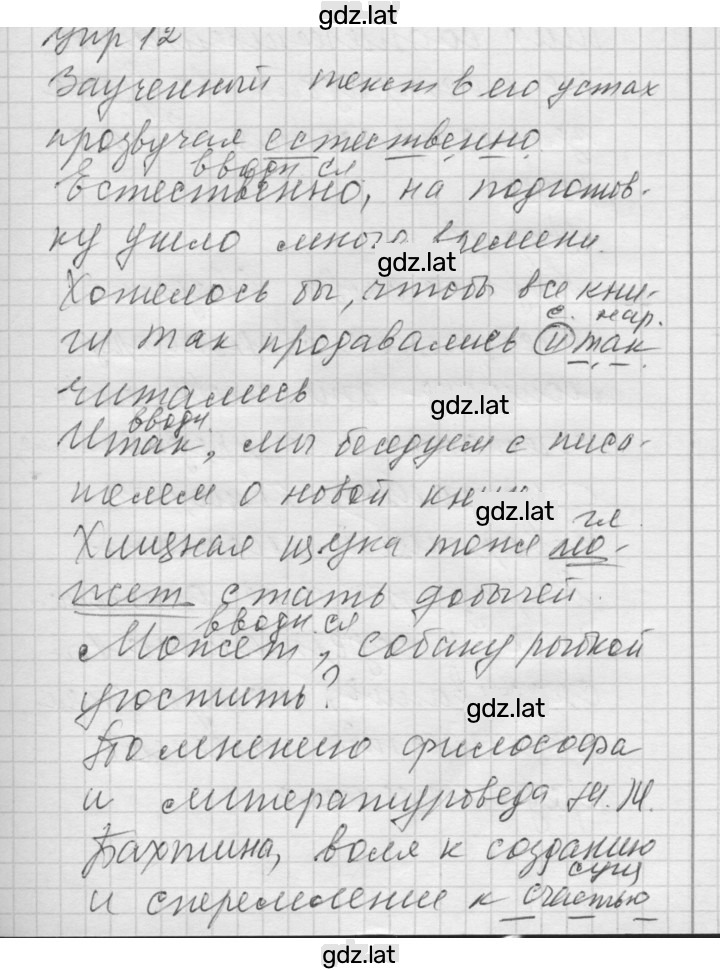 gdz.lat
Упр 12
Заученный текст в его устах
прозвучал естественно
вводн. сл.
Естественно, на подготов-
ку ушло много времени.
gdz.lat
Хотелось бы, чтобы все кни-
с. нар.
ги так продавались и так
читались
gdz.lat
вводн
Итак, мы беседуем с писа-
телем о новой
gdz.lat
гл.
Хищная щука тоже мо-
жет стать добычей.
вводн. сл
Может, собаку рыбкой
угостить?
gdz.lat
По мнению философа
и литературоведа М. М.
Бахтина, воля к созданию
сущ
и стремление к счастью
gdz.lat